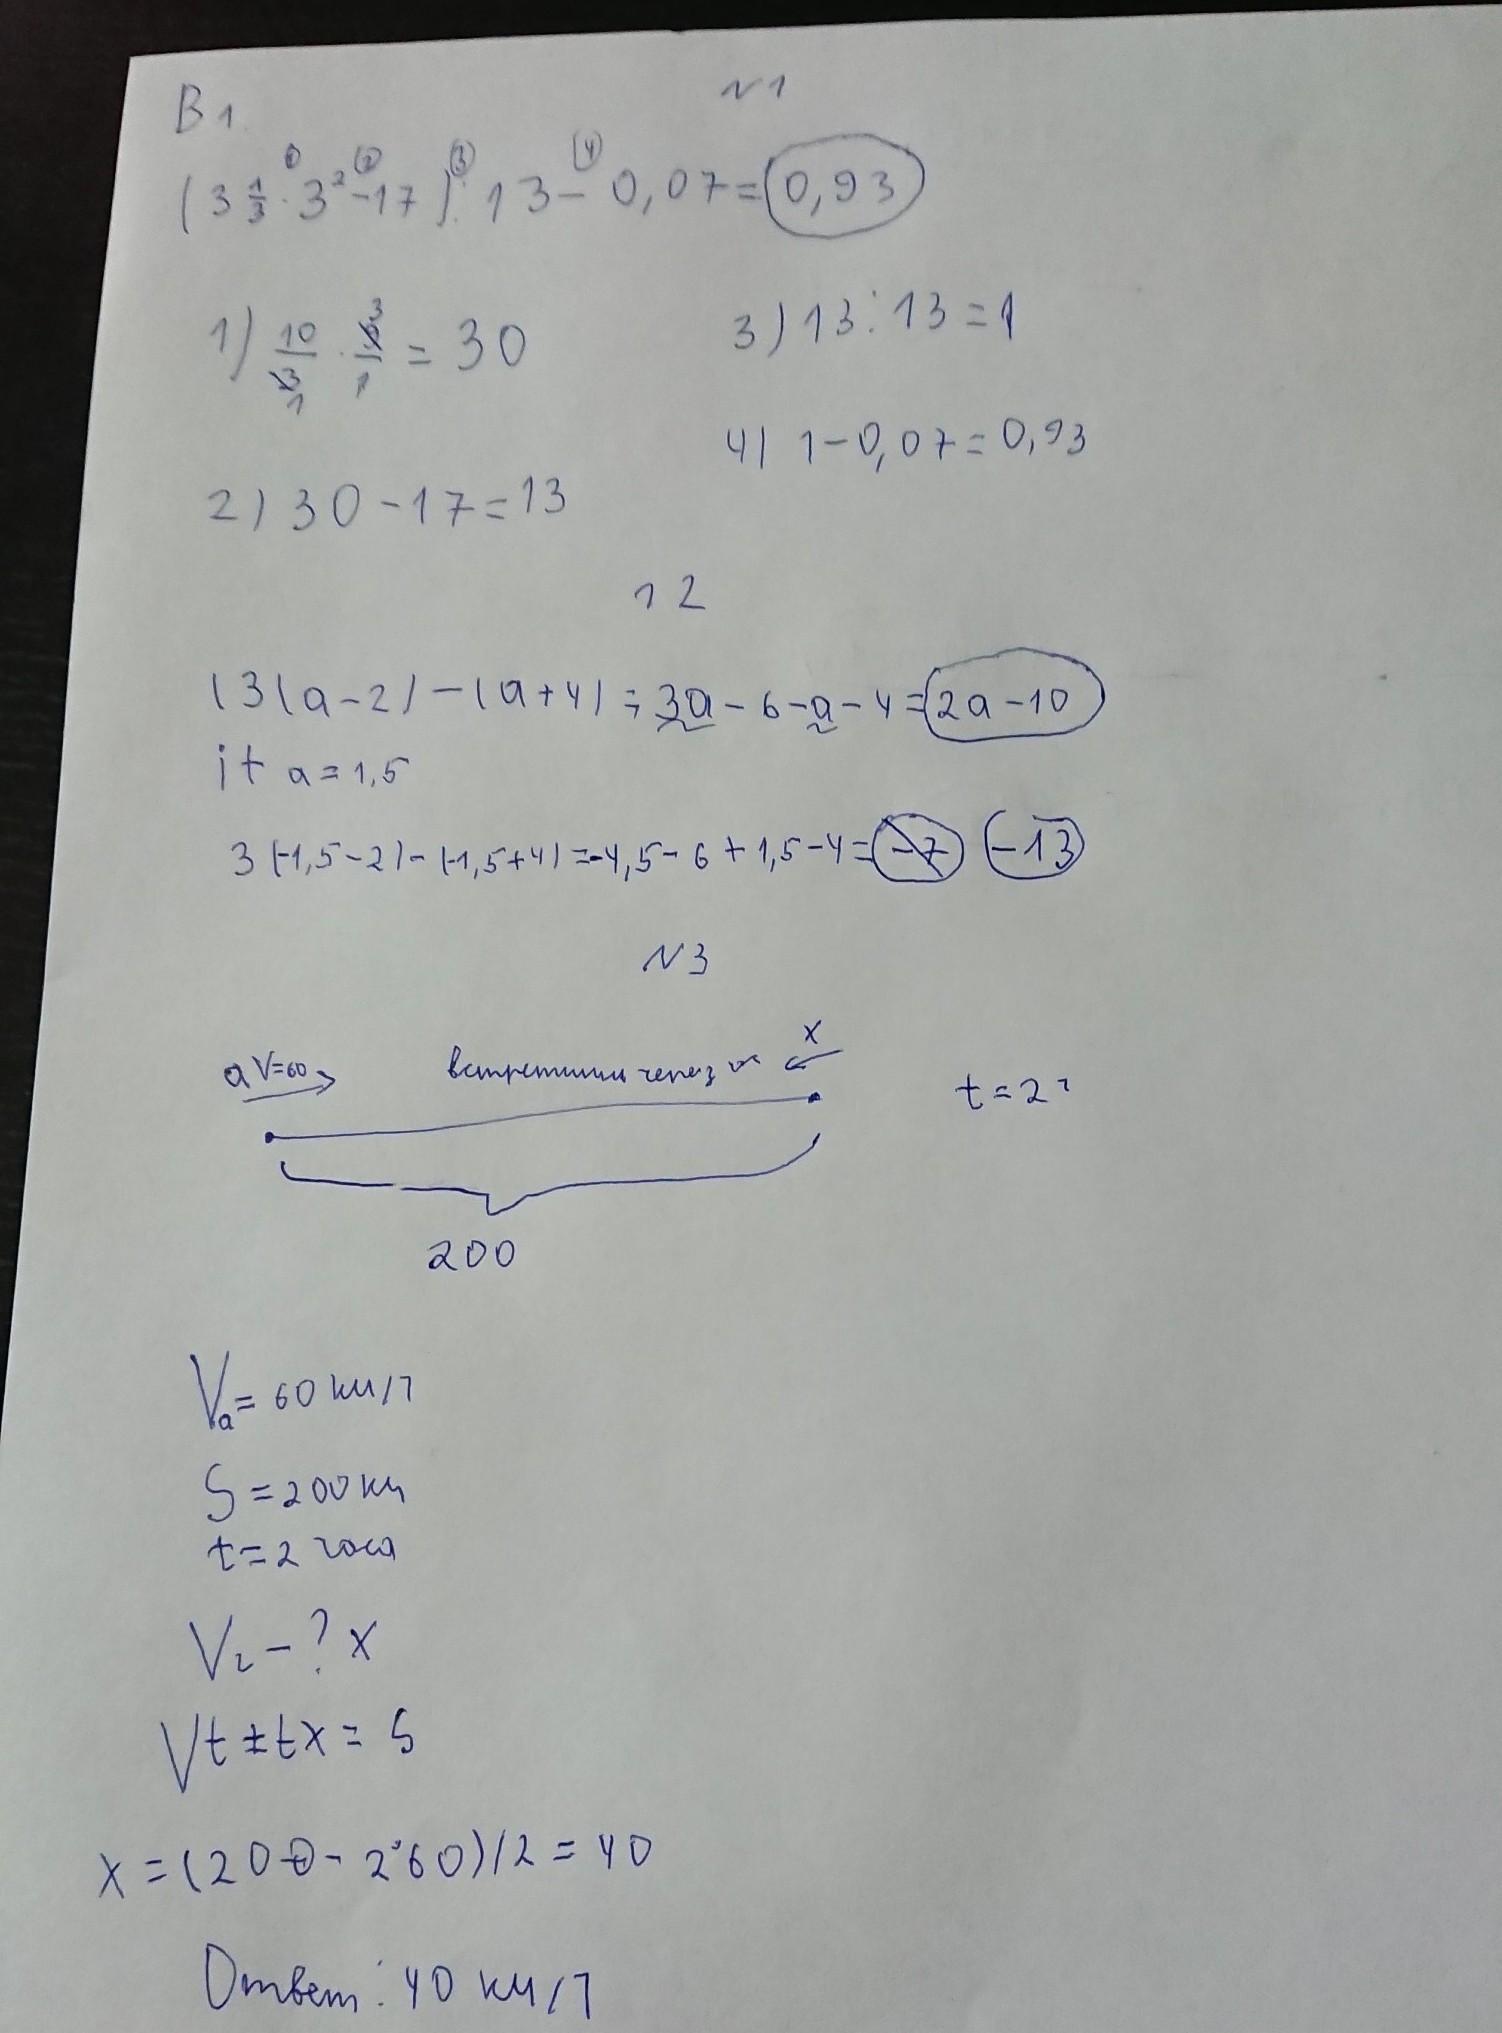 В1
N1
(3 1/3 · 3² - 17) : 13 - 0,07 = 0,93
1) 10/3 · 9/1 = 30
3) 13 : 13 = 1
4) 1 - 0,07 = 0,93
2) 30 - 17 = 13
N2
(3(a-2) - (a+4) = 3a - 6 - a - 4 = 2a - 10
if a = 1,5
3(-1,5-2) - (-1,5+4) = -4,5 - 6 + 1,5 - 4 = -7 -13
N3
a V=60 встретили через x
t = 2 ч
200
Va = 60 км/ч
S = 200 км
t = 2 часа
V2 - ? x
Vt + tx = S
x = (200 - 2·60)/2 = 40
Ответ: 40 км/ч